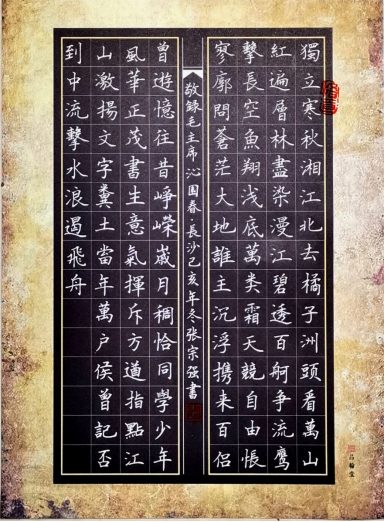 獨立寒秋湘江北去橘子洲頭看萬山
紅遍層林盡染漫江碧透百舸争流鹰
擊長空魚翔浅底萬类霜天競自由悵
寥廓問蒼茫大地誰主沉浮携来百侣
敬錄毛主席沁园春·長沙己亥年冬张宗强書
曾遊憶往昔崢嶸歲月稠恰同學少年
風華正茂書生意氣揮斥方遒指點江
山激揚文字糞土當年萬户侯曾記否
到中流擊水浪遏飛舟